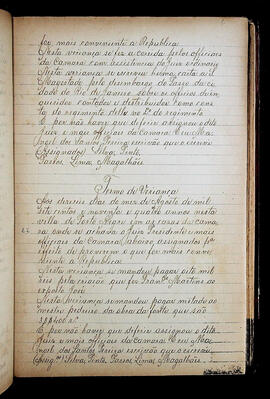 for mais conveniente a Republica.
Nesta veriança se fez a correição pelos officiaes
da Camara com assistencia do Juiz ordinario
Nesta veriança se escreveu huma carta a S.
Magestade pelo dezembargo do Passo da ci
dade do Rio de Janeiro sobre os officios de in
queridor contador e distribuidor como cons
ta do regimento delle no L.º de registo
E por não haver que diferir assignou o dito
Juiz e mais officiaes da Camara. Eu Ma
noel dos Santos Pereira escrivão que o escrevi
(Assignados) Silva, Pinto,
Passos, Lima, Magalhães
Termo de Veriança
Aos dezeseis dias do mez de Agosto de mil
sete centos e noventa e quatro annos nesta
villa de Porto Alegre em as casas da Cama
ra, onde se achava o Juiz Presidente e mais
officiaes da Camara, abaixo assignados p.ª
effeito de proverem o que for mais conve
niente a Republica
Nesta veriança se mandou pagar oito mil
reis pela criação que fez Fran.co Martins ao
exposto José
Nesta veriança se mandou pagar metade ao
mestre pedreiro da obra da fonte que são
E por não haver que deferir assignou o dito
Juiz e mais officiaes da Camara Eu Ma
noel dos Santos Pereira escrivão que o escrevi
Silva, Pinto, Passos, Lima, Magalhães.